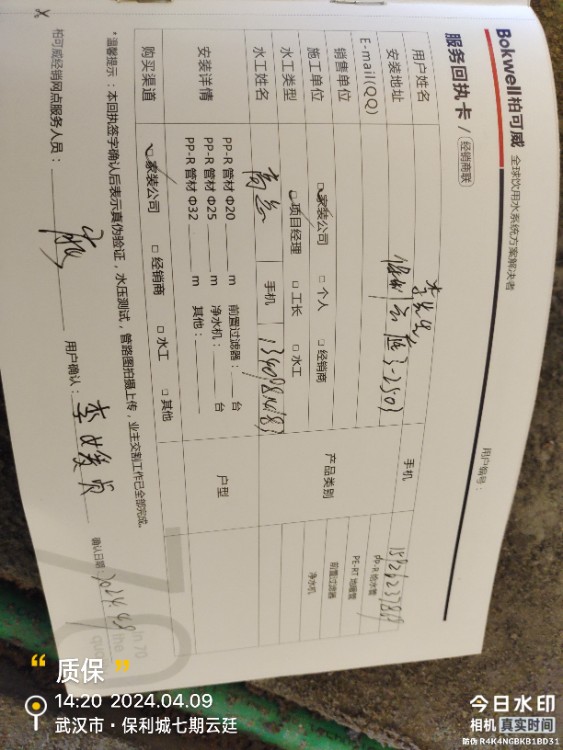 Bokwell柏可威 全球饮用水系统方案解决者
服务回执卡 / 经销商联
用户编号：
用户姓名 李先生 手机
安装地址 保利云廷3-2503
E-mail(QQ)
销售单位
施工单位 家装公司 个人 经销商
产品类别 pp-R 给水管 PE-RT 地暖管 前置过滤器 净水机
水工类型 项目经理 工长 水工
水工姓名 手机
安装详情 PP-R 管材 Φ20 m 前置过滤器： 台 户型
PP-R 管材 Φ25 m 净水机： 台
PP-R 管材 Φ32 m 其他：
购买渠道 家装公司 经销商 水工 其他
*温馨提示：本回执签字确认后表示真伪验证，水压测试，管路图拍摄上传，业主交割工作已全部完成。
柏可威经销网点服务人员： 用户确认： 确认日期：2024.4.9
“ 质保 ”
14:20 2024.04.09
武汉市·保利城七期云廷
今日水印
相机 真实时间
防伪 R4K4NGBKB1BD31